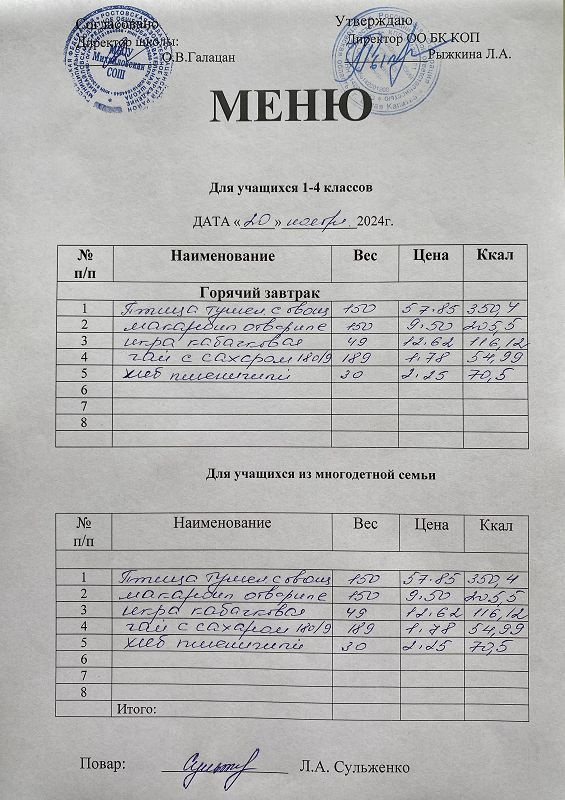 Согласовано
Директор школы:
О.В.Галацан
Утверждаю
Директор ОО БК КОП
Рыжкина Л.А.
Михайловская
СОШ
МЕНЮ
Для учащихся 1-4 классов
ДАТА «20» ноябр. 2024г.
№ п/п Наименование Вес Цена Ккал
Горячий завтрак
1 Птица тушен с овощ 150 57.85 350,4
2 макарон отварные 150 9.50 205,5
3 икра кабачковая 49 12.62 116,12
4 чай с сахаром 180/9 189 1.78 54,99
5 хлеб пшеничный 30 2.25 70,5
6
7
8
Для учащихся из многодетной семьи
№ п/п Наименование Вес Цена Ккал
1 Птица тушен с овощ 150 57.85 350,4
2 макарон отварные 150 9.50 205,5
3 икра кабачковая 49 12.62 116,12
4 чай с сахаром 180/9 189 1.78 54,99
5 хлеб пшеничный 30 2.25 70,5
6
7
8
Итого:
Повар: Л.А. Сульженко